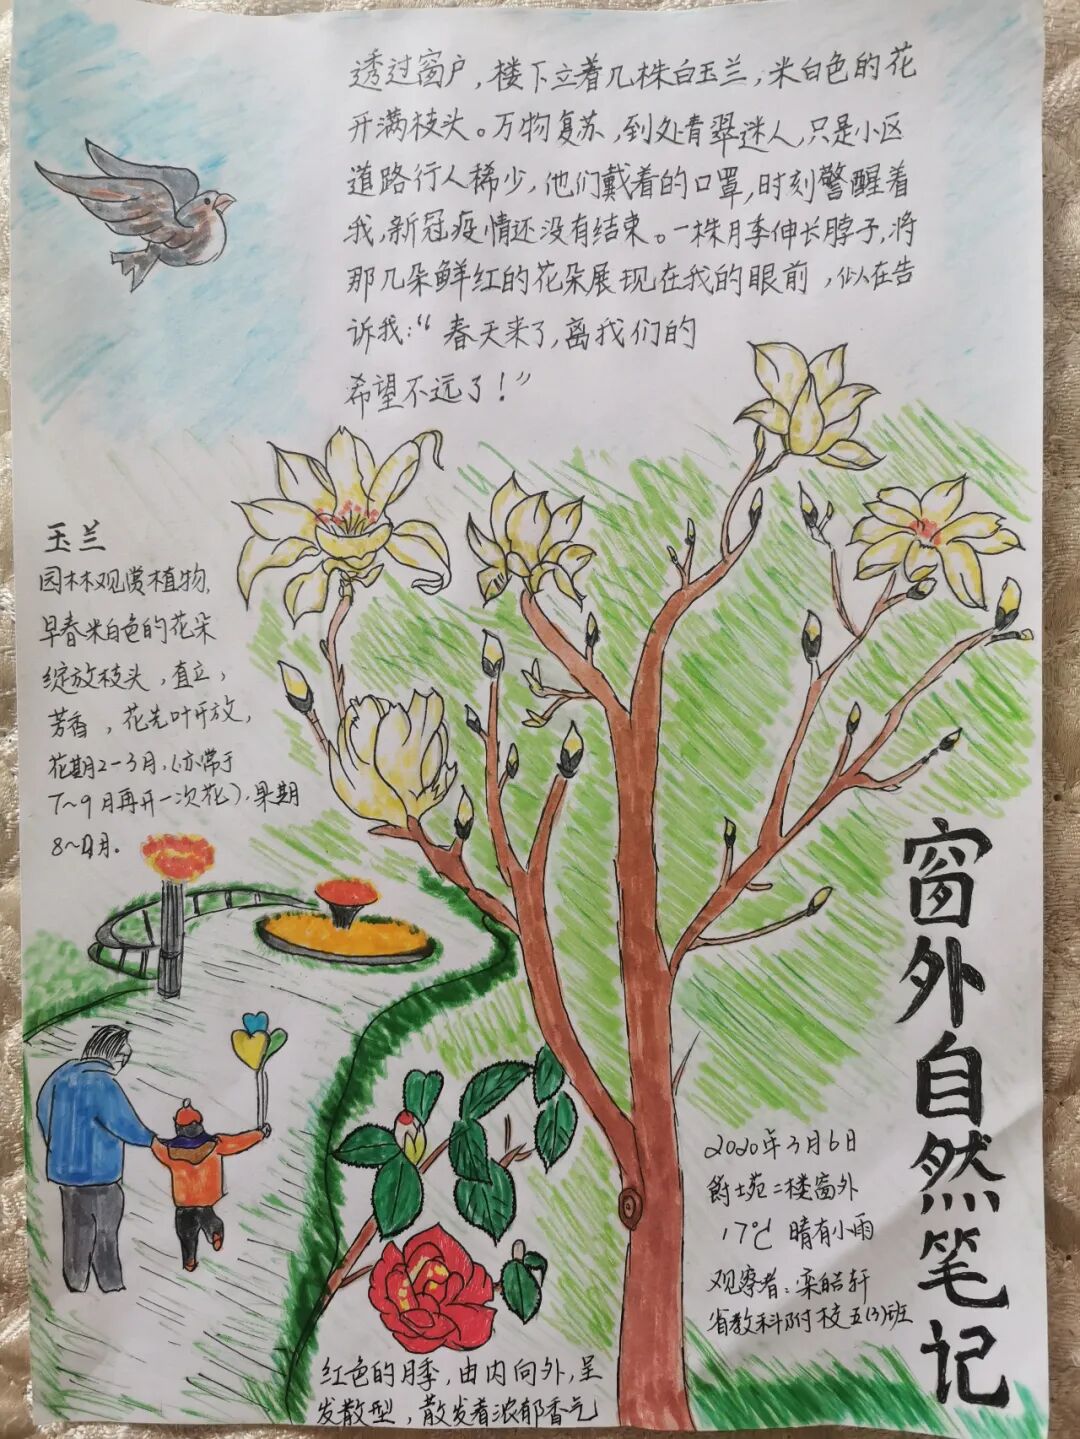 透过窗户，楼下立着几株白玉兰，米白色的花
开满枝头。万物复苏，到处青翠迷人，只是小区
道路行人稀少，他们戴着的口罩，时刻警醒着
我，新冠疫情还没有结束。一株月季伸长脖子，将
那几朵鲜红的花朵展现在我的眼前，似在告
诉我：“春天来了，离我们的
希望不远了！”
玉兰
园林观赏植物，
早春米白色的花朵
绽放枝头，直立，
芳香，花先叶开放，
花期2-3月，（亦常于
7~9月再开一次花），果期
8~月。
窗外自然笔记
2020年3月6日
爵士苑二楼窗外
17℃ 晴有小雨
观察者：栾皓轩
省教科附校五(3)班
红色的月季，由内向外，呈
发散型，散发着浓郁香气